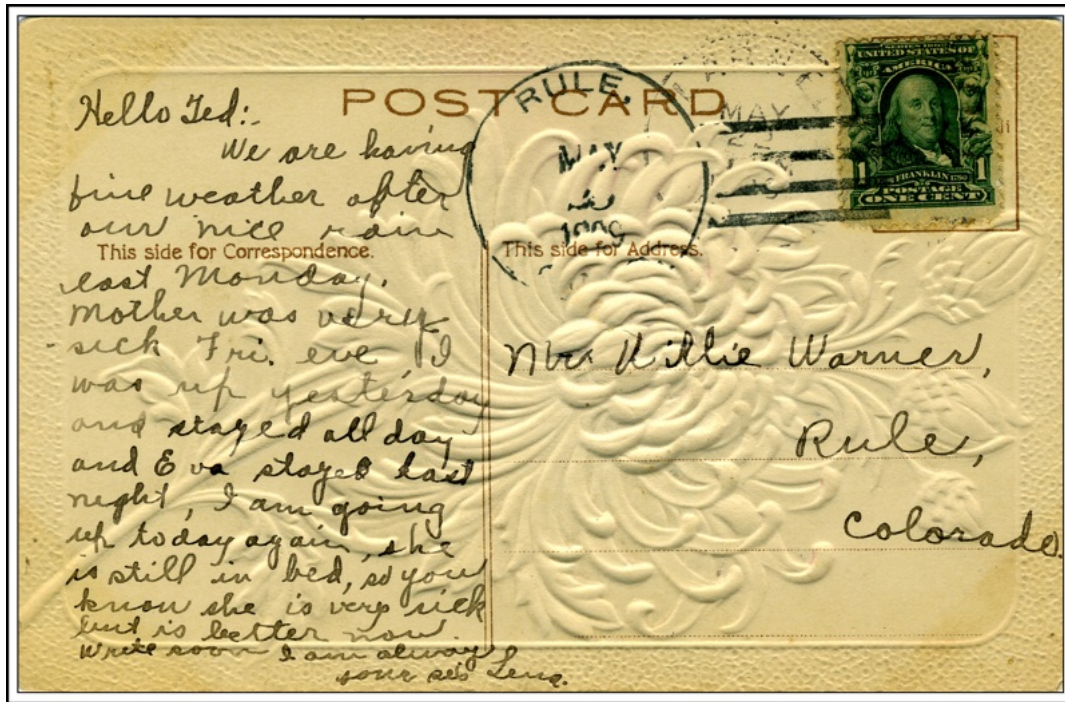 POST CARD
RULE,
MAY
1909
MAY
SERIES 1902
UNITED STATES OF
AMERICA
1 1
FRANKLIN
POSTAGE
ONE CENT
This side for Correspondence.
This side for Address.
Hello Ted:-
We are having
fine weather after
our nice rain
last Monday.
Mother was very
sick Fri. eve I
was up yesterday
and stayed all day
and Eva stayed last
night, I am going
up today again, she
is still in bed, so you
know she is very sick
but is better now.
Write soon I am alway
your sis Lena.
Mr. Willie Warner,
Rule,
Colorado.